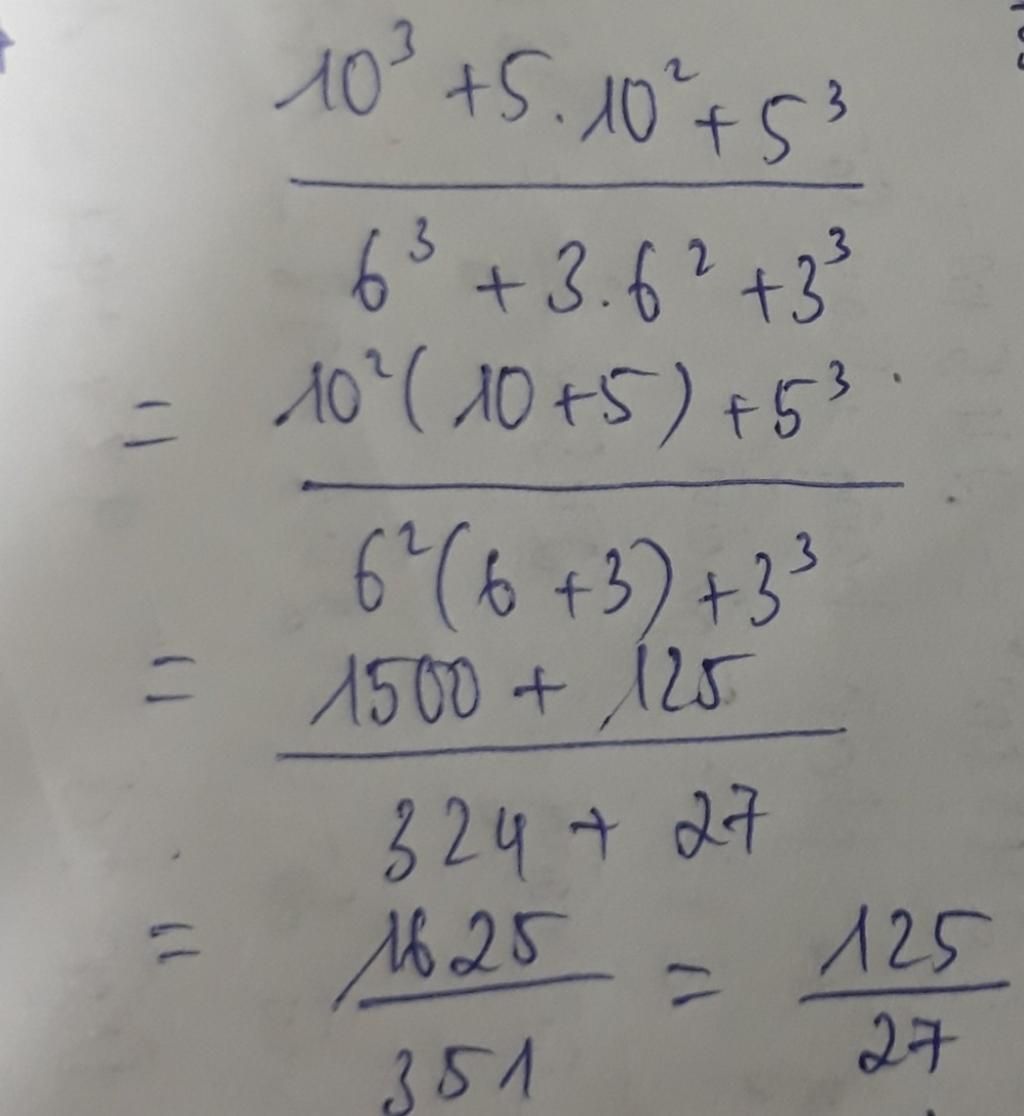 10³ + 5 . 10² + 5³
6³ + 3 . 6² + 3³
= 10² ( 10 + 5 ) + 5³
6² ( 6 + 3 ) + 3³
= 1500 + 125
324 + 27
= 1625 = 125
351 27